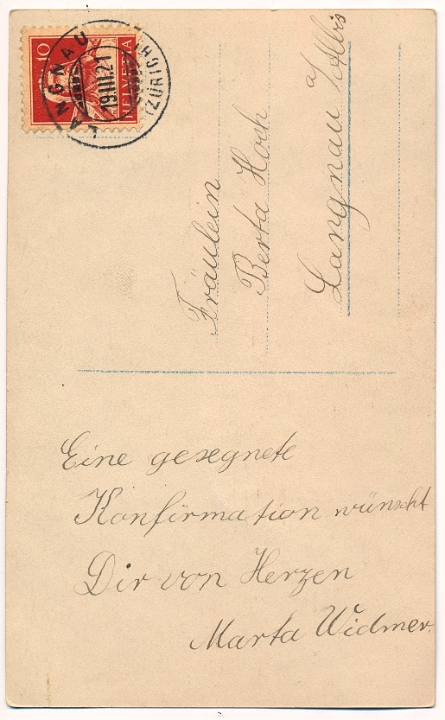 10
HELVETIA
LANGNAU
19.III.21
(ZÜRICH)
Fräulein
Berta Hoch
Langnau a/Albis
Eine gesegnete
Konfirmation wünscht
Dir von Herzen
Marta Widmer.